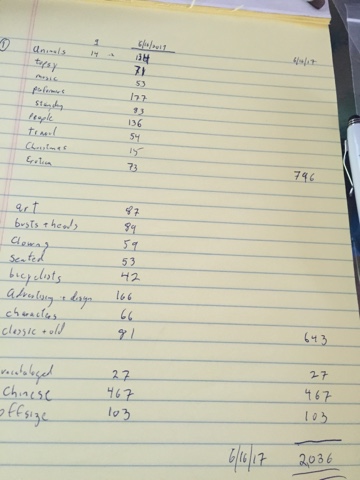 1 1 6/16/2017
animals 14 6/16/17
topsy 71
music 53
performers 177
standing
people 136
travel 54
Christmas 15
Erotica 73
796
art 87
busts + heads 89
Clowns 59
Seated 53
bicyclists 42
Advertising + design 166
characters 66
classic + old 81 643
uncataloged 27 27
Chinese 467 467
offsize 103 103
6/16/17 2036